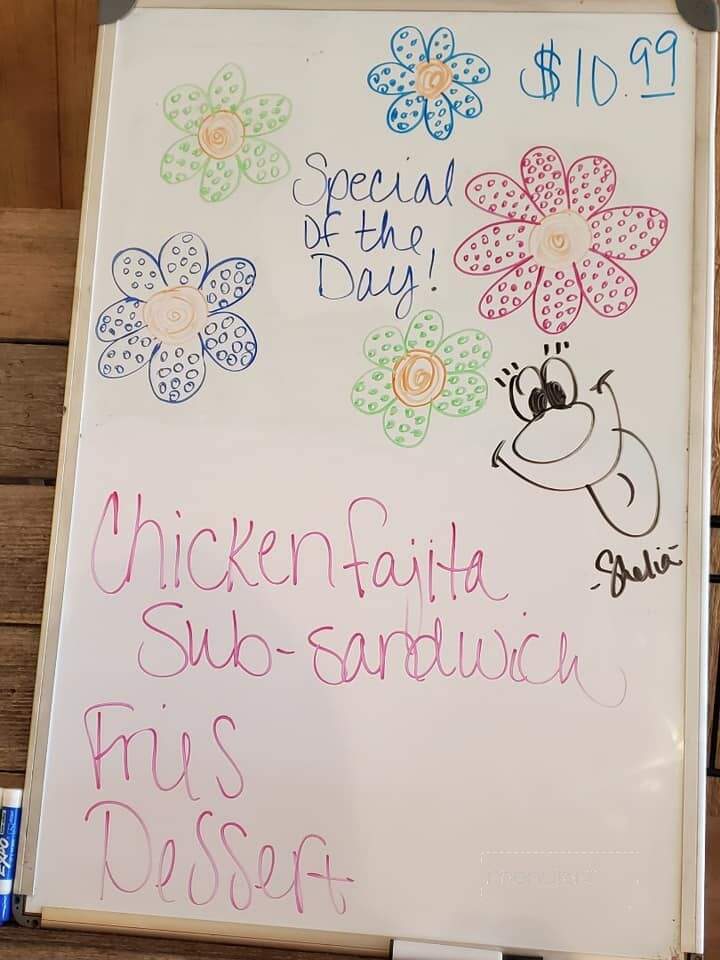 $10.99
Special
of the
Day!
-Shelia-
Chicken fajita
Sub-sandwich
Fries
Dessert
EXPO